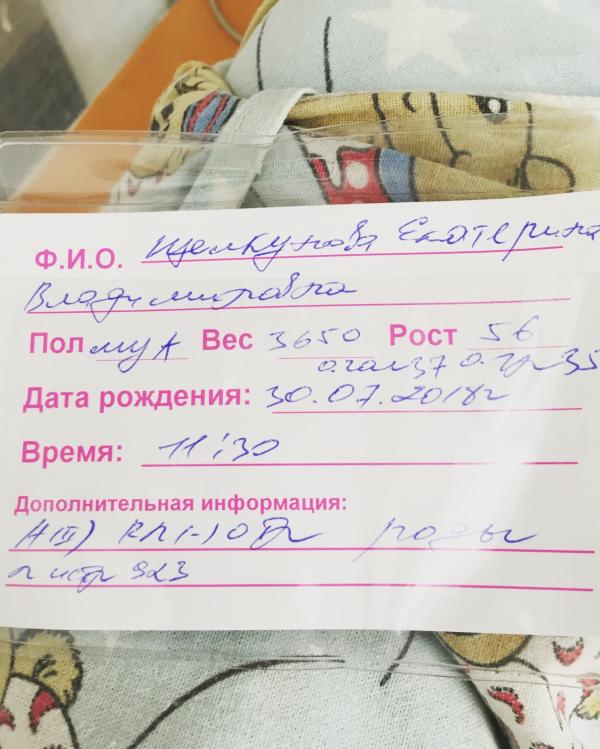 Ф.И.О. Щелкунова Екатерина
Владимировна
Пол муж Вес 3650 Рост 56
о.гол 37 о.гр 35
Дата рождения: 30.07.2018г
Время: 11:30
Дополнительная информация:
A(II) Rh(-) роды
и/р 923